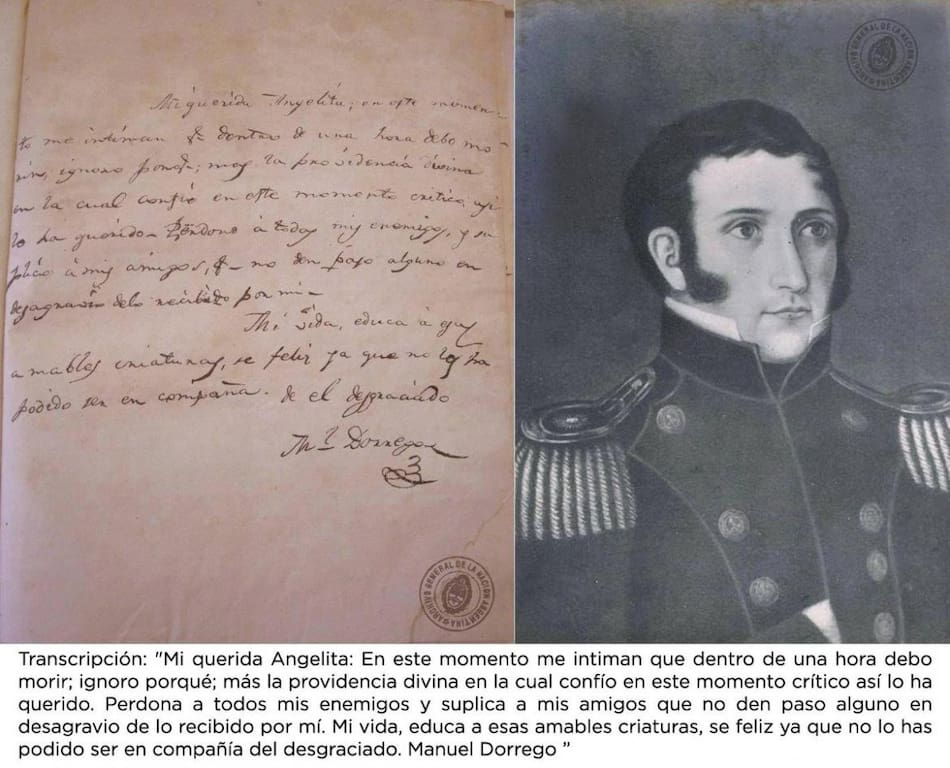 Mi querida Angelita; en este momen-
to me intiman q.e dentro de una hora debo mo-
rir, ignoro porq.e; mas la providencia divina
en la cual confio en este momento critico, asi
lo ha querido. Perdono á todos mis enemigos, y su
plico á mis amigos, q.e no den paso alguno en
desagravio delo recibido por mi-
Mi Vida, educa á esas
amables criaturas, se feliz ya que no lo has
podido ser en compañia. de el desgraciado
M.l Dorrego
ARCHIVO GENERAL DE LA NACIÓN ARGENTINA
ARCHIVO GENERAL DE LA NACIÓN ARGENTINA
Transcripción: "Mi querida Angelita: En este momento me intiman que dentro de una hora debo
morir; ignoro porqué; más la providencia divina en la cual confío en este momento crítico así lo ha
querido. Perdona a todos mis enemigos y suplica a mis amigos que no den paso alguno en
desagravio de lo recibido por mí. Mi vida, educa a esas amables criaturas, se feliz ya que no lo has
podido ser en compañía del desgraciado. Manuel Dorrego ”